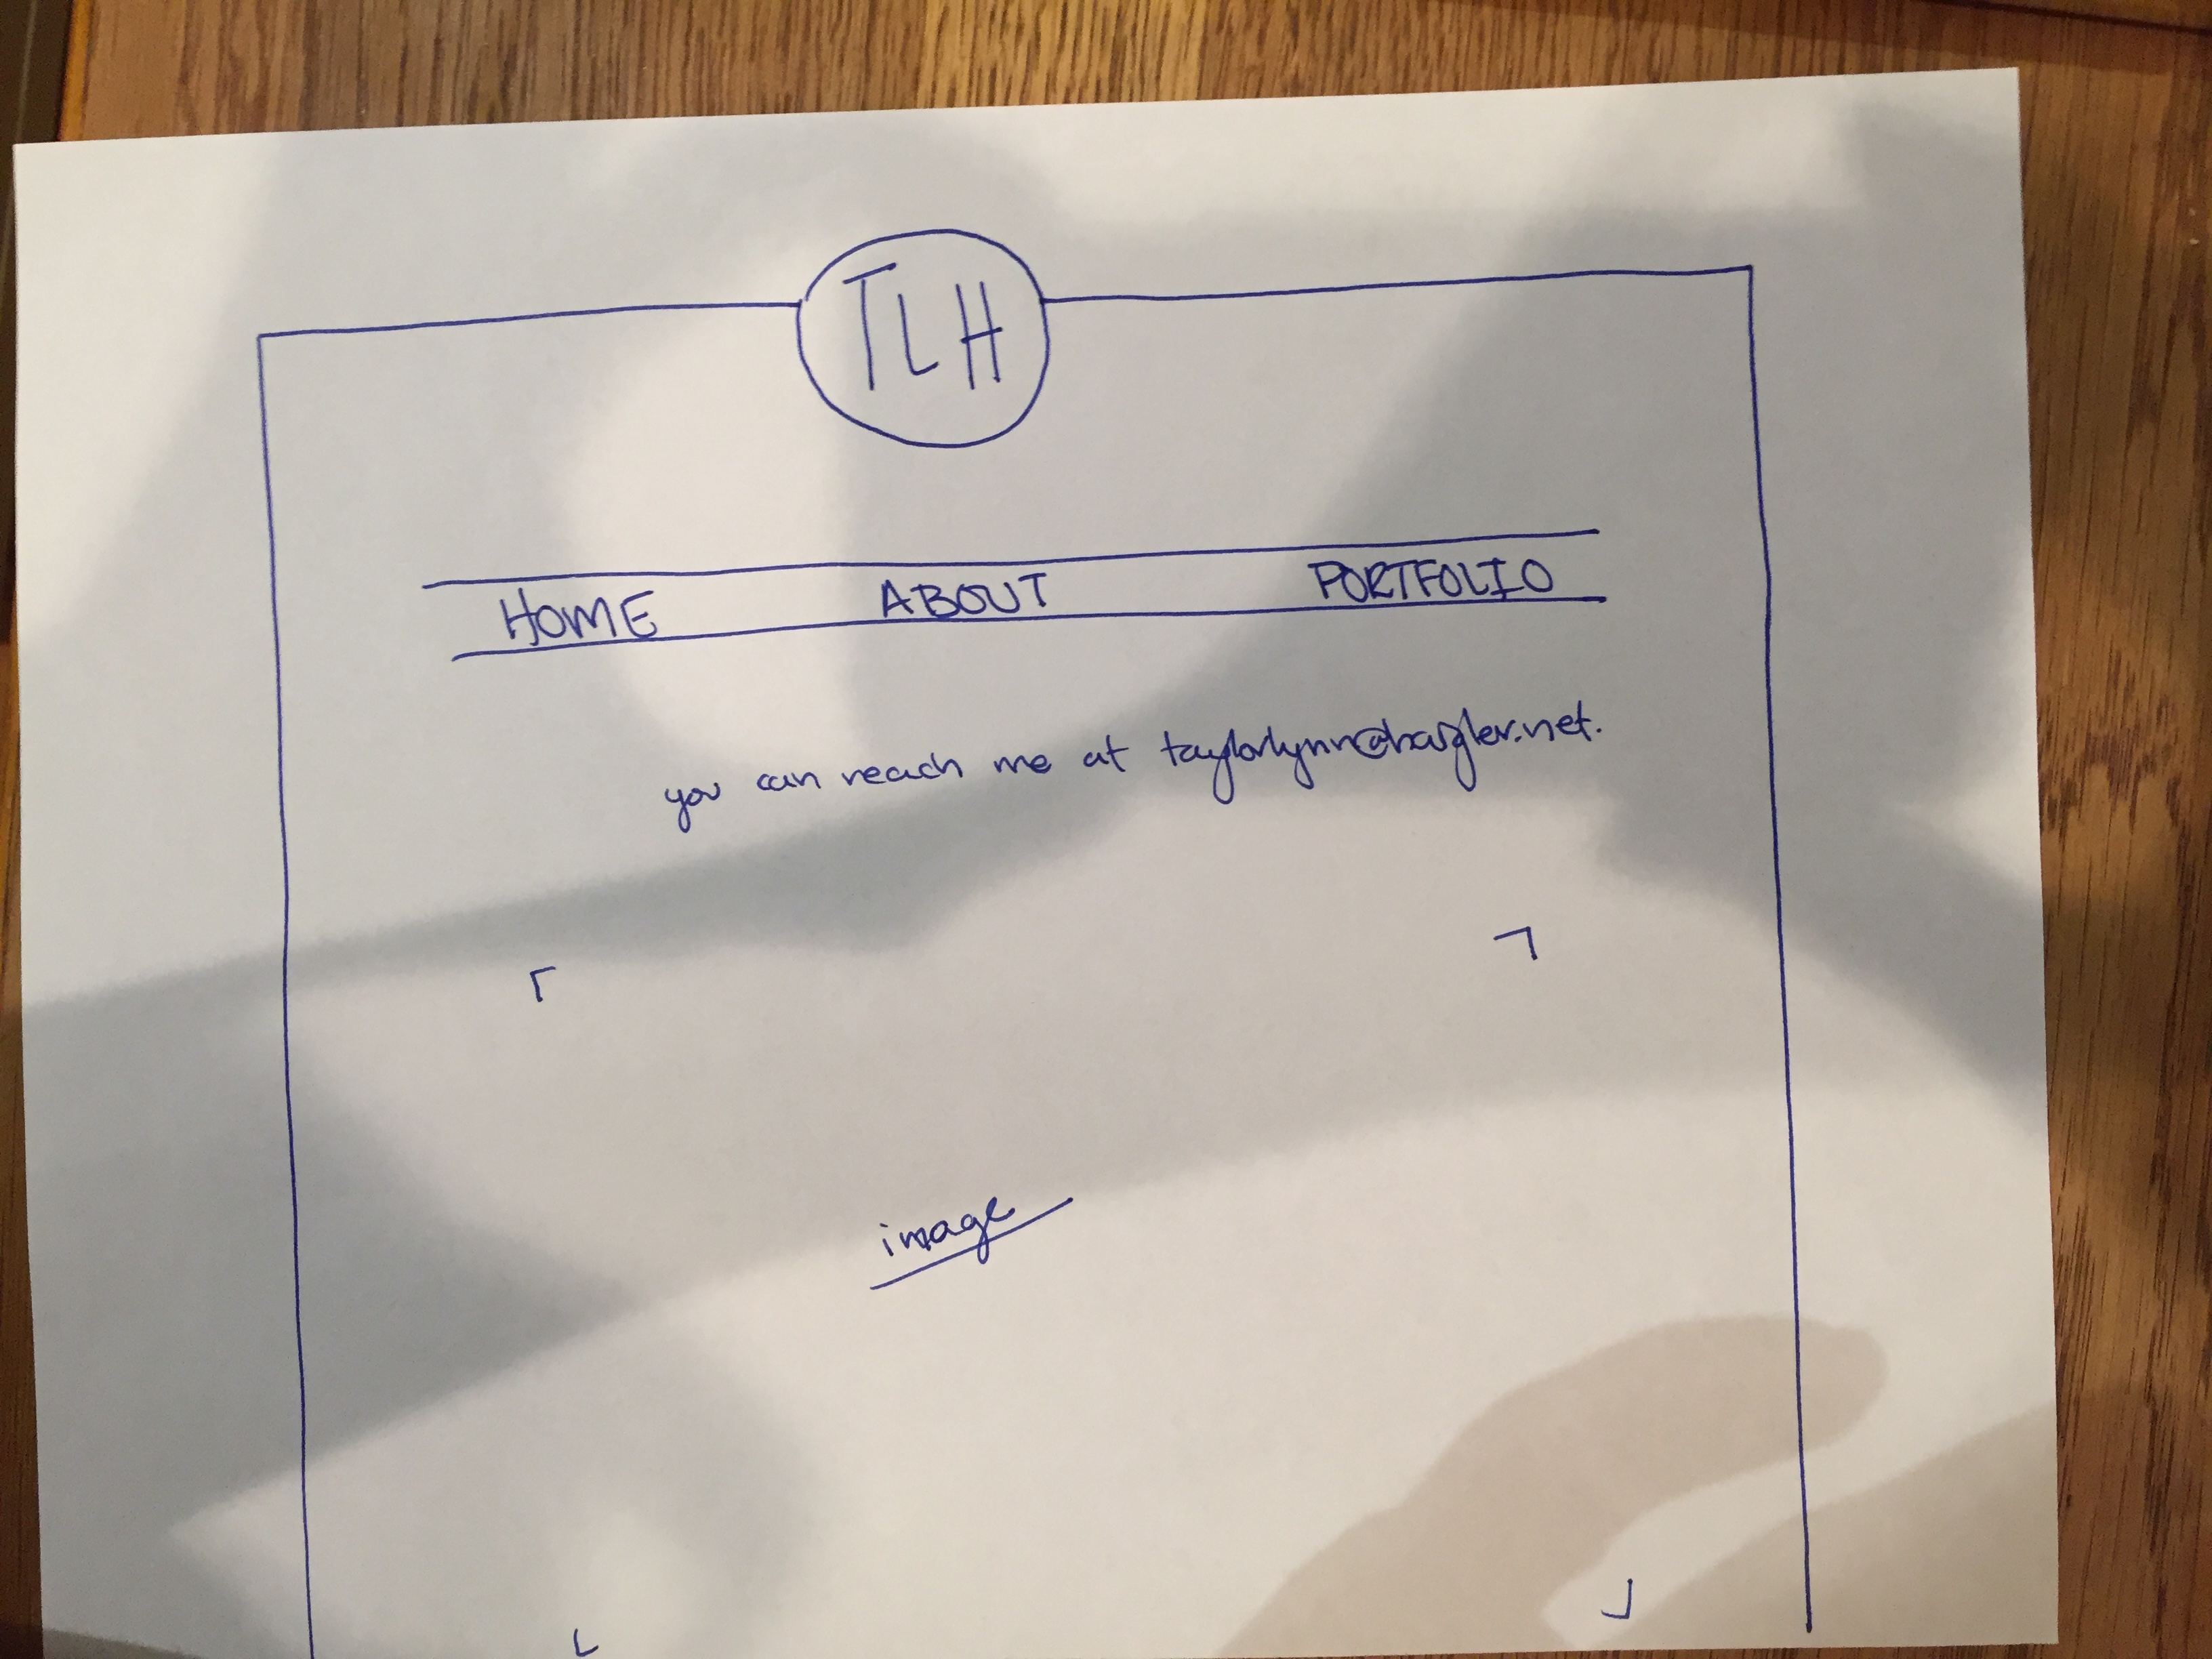 TLH
HOME ABOUT PORTFOLIO
you can reach me at taylorlynn@hagler.net.
image